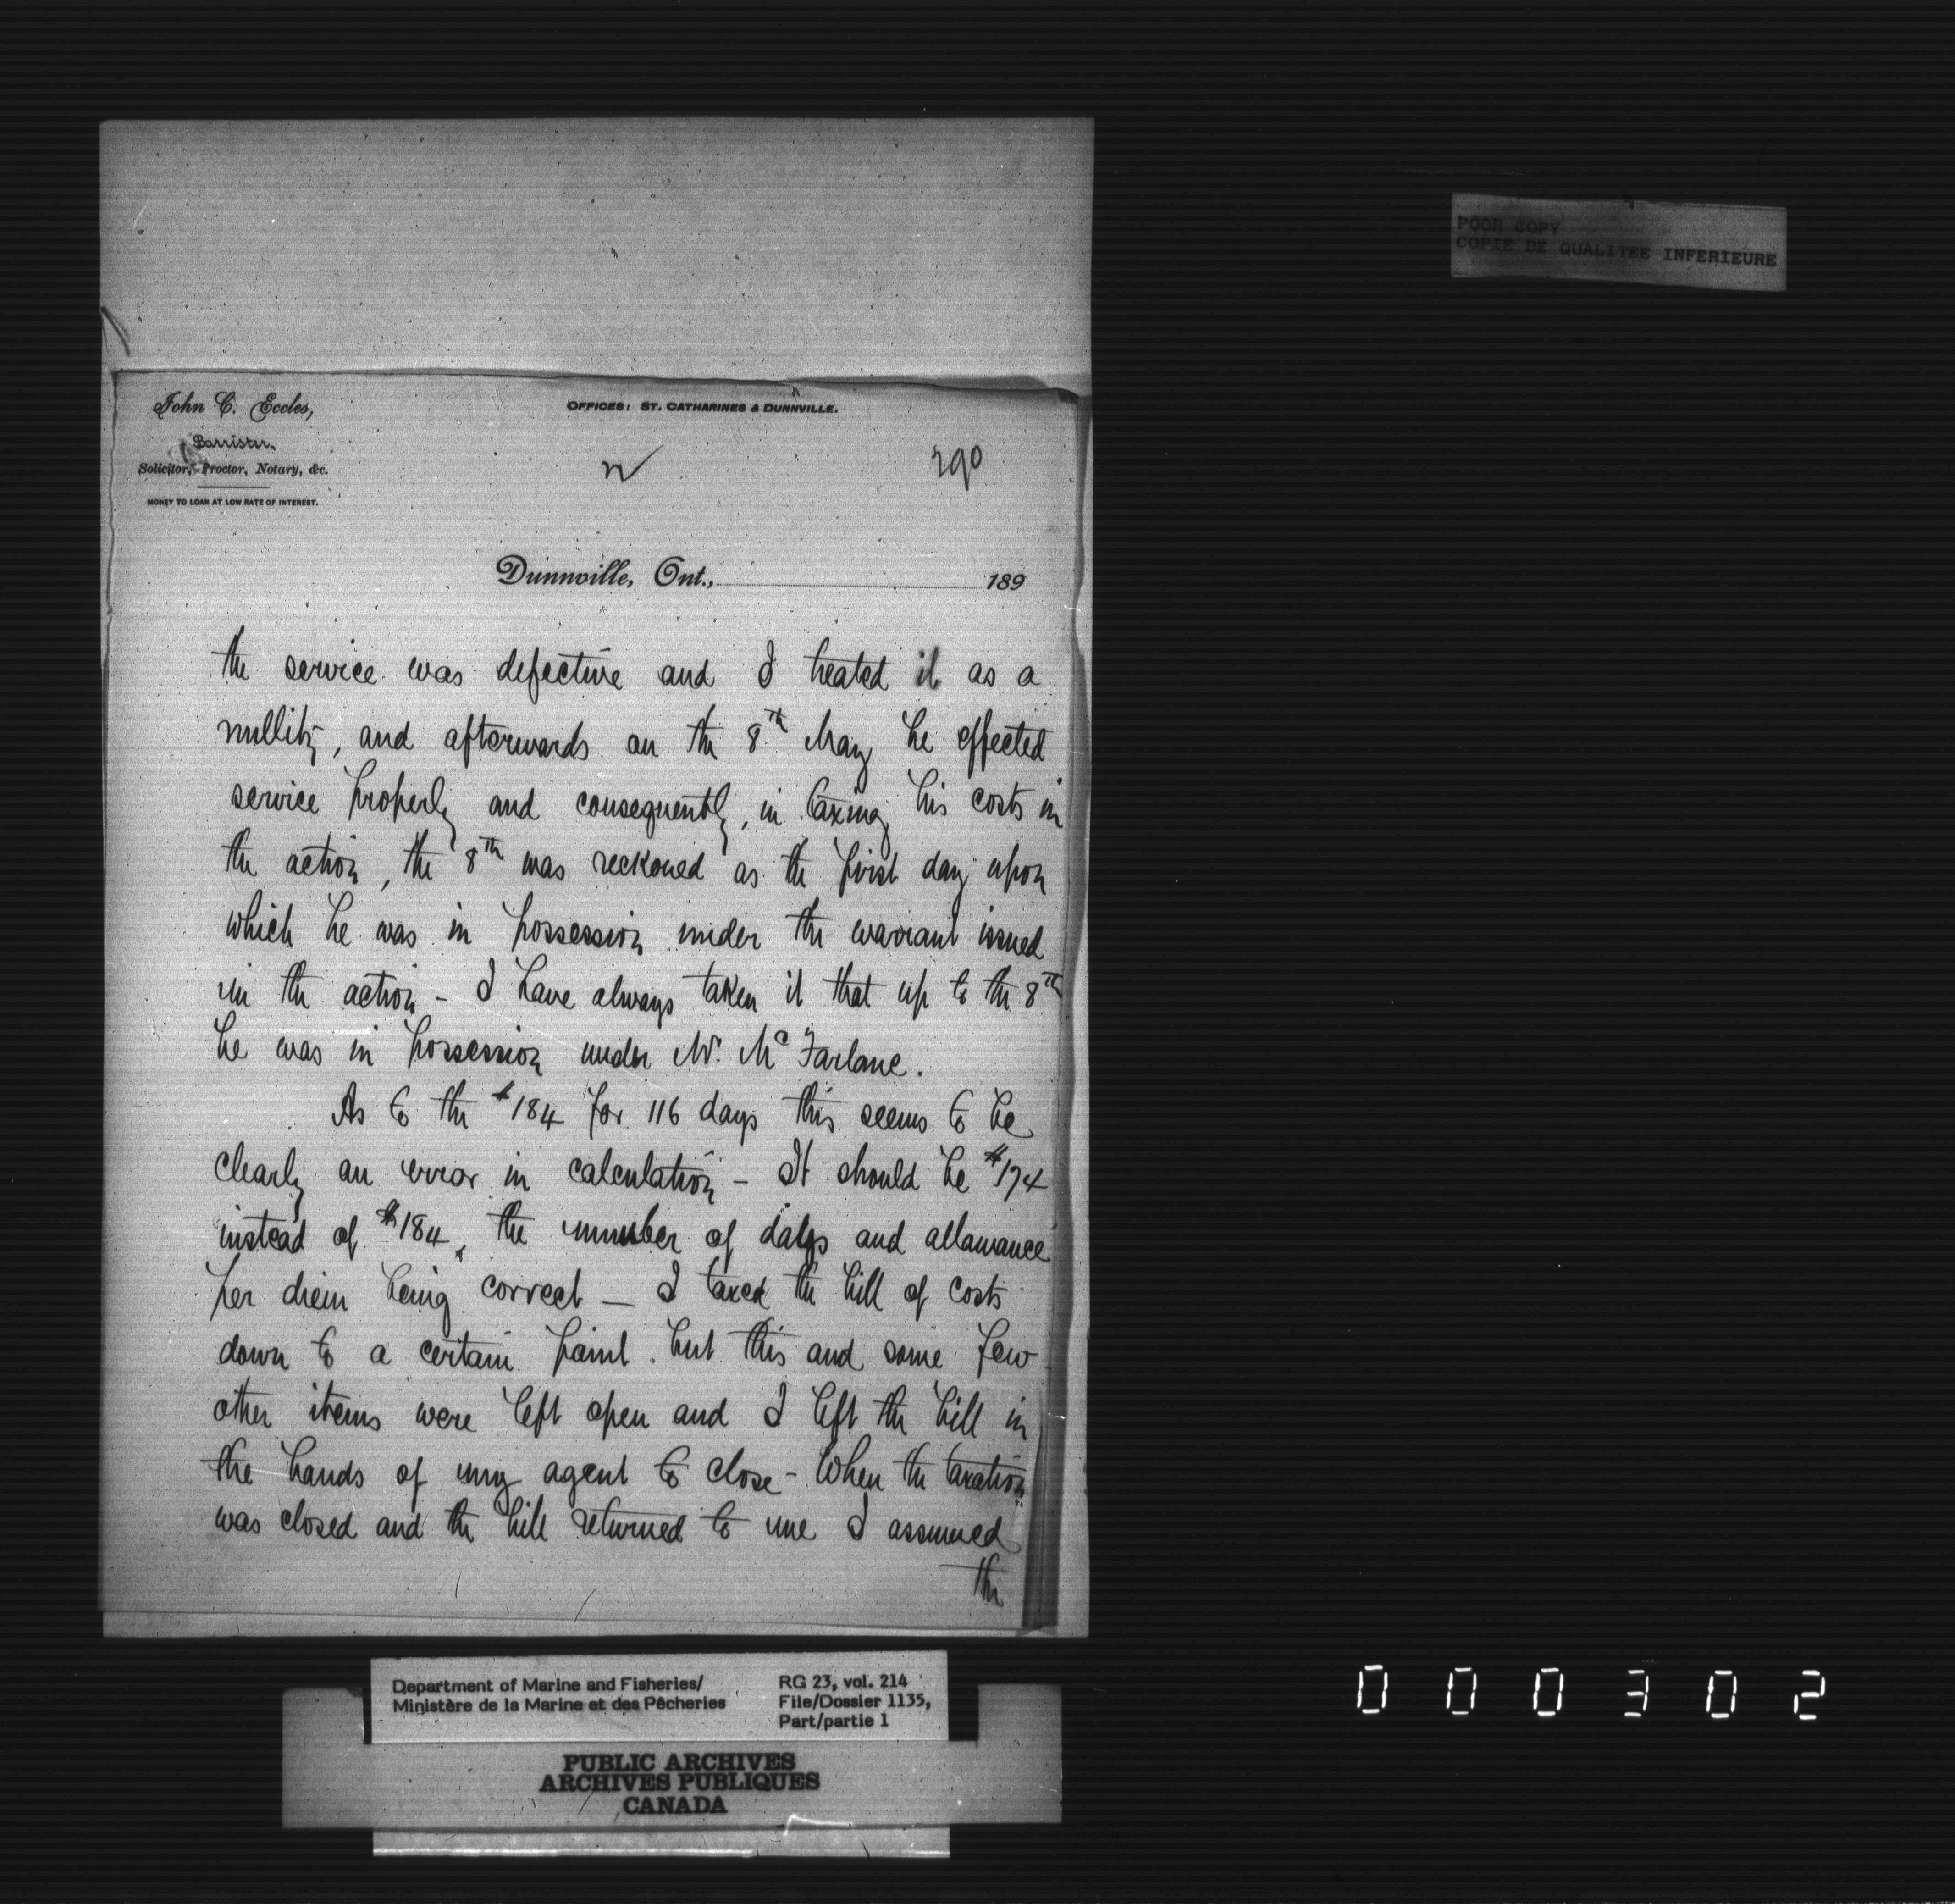 John C. Eccles,
Barrister,
Solicitor, Proctor, Notary, &c.
MONEY TO LOAN AT LOW RATE OF INTEREST.
OFFICES: ST. CATHARINES & DUNNVILLE.
290
Dunnville, Ont., 189
the service was defective and I treated it as a
nullity, and afterwards on the 8th May he effected
service properly and consequently, in taxing his costs in
the action, the 8th was reckoned as the first day upon
which he was in possession under the warrant issued
in the action - I have always taken it that up to the 8th
he was in possession under Mr. McFarlane.
As to the $184 for 116 days this seems to be
clearly an error in calculation - It should be $174
instead of $184, the number of days and allowance
per diem being correct - I taxed the bill of costs
down to a certain point but this and some few
other items were left open and I left the bill in
the hands of my agent to close - When the taxation
was closed and the bill returned to me I assumed
the
POOR COPY
COPIE DE QUALITEE INFERIEURE
Department of Marine and Fisheries/
Ministère de la Marine et des Pêcheries
RG 23, vol. 214
File/Dossier 1135,
Part/partie 1
PUBLIC ARCHIVES
ARCHIVES PUBLIQUES
CANADA
000302